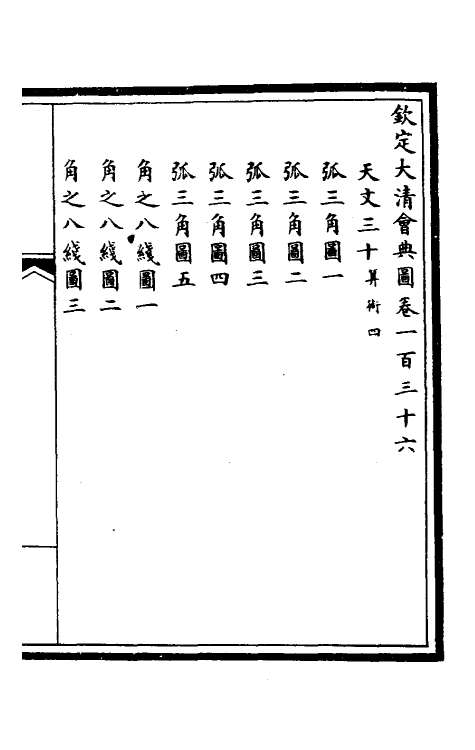 欽定大清會典圖卷一百三十六
天文三十算術四
弧三角圖一
弧三角圖二
弧三角圖三
弧三角圖四
弧三角圖五
角之八綫圖一
角之八綫圖二
角之八綫圖三